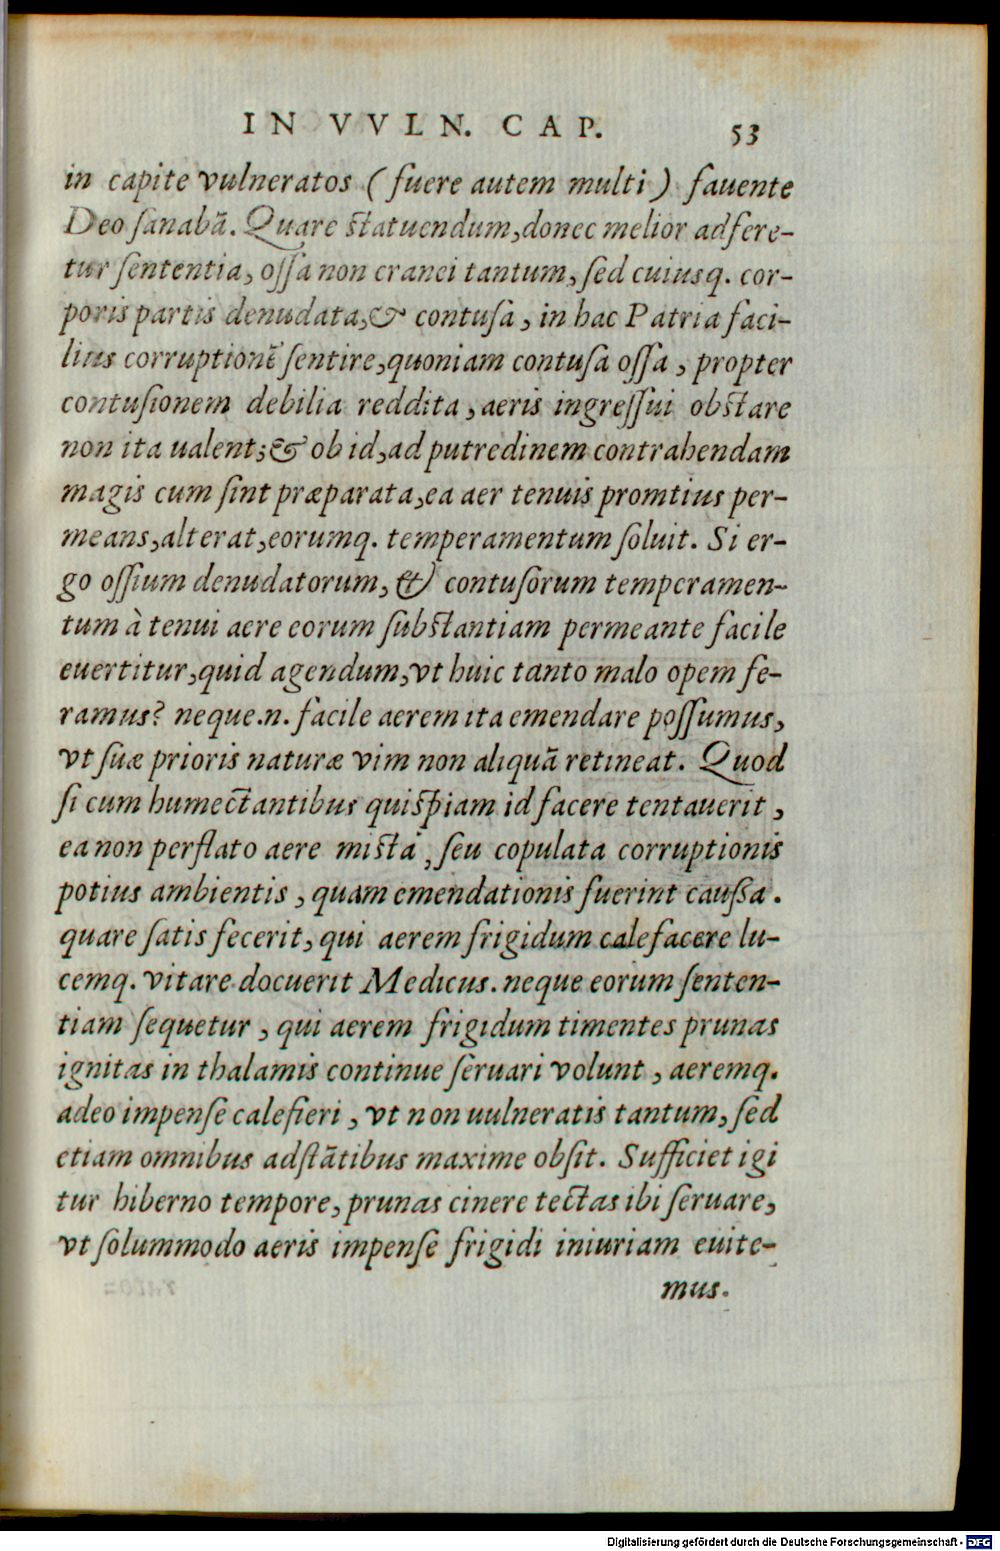 IN VVLN. CAP. 53
in capite vulneratos (fuere autem multi) fauente
Deo sanabā. Quare statuendum, donec melior adfere-
tur sententia, ossa non cranei tantum, sed cuiusq. cor-
poris partis denudata, & contusa, in hac Patria faci-
lius corruptionē sentire, quoniam contusa ossa, propter
contusionem debilia reddita, aeris ingressui obstare
non ita ualent; & ob id, ad putredinem contrahendam
magis cum sint præparata, ea aer tenuis promtius per-
means, alterat, eorumq. temperamentum soluit. Si er-
go ossium denudatorum, & contusorum temperamen-
tum à tenui aere eorum substantiam permeante facile
euertitur, quid agendum, vt huic tanto malo opem fe-
ramus? neque .n. facile aerem ita emendare possumus,
vt suæ prioris naturæ vim non aliquā retineat. Quod
si cum humectantibus quispiam id facere tentauerit,
ea non perflato aere mista, seu copulata corruptionis
potius ambientis, quam emendationis fuerint caussa.
quare satis fecerit, qui aerem frigidum calefacere lu-
cemq. vitare docuerit Medicus. neque eorum senten-
tiam sequetur, qui aerem frigidum timentes prunas
ignitas in thalamis continue seruari volunt, aeremq.
adeo impense calefieri, vt non uulneratis tantum, sed
etiam omnibus adstātibus maxime obsit. Sufficiet igi
tur hiberno tempore, prunas cinere tectas ibi seruare,
vt solummodo aeris impense frigidi iniuriam euite-
mus.
Digitalisierung gefördert durch die Deutsche Forschungsgemeinschaft - DFG